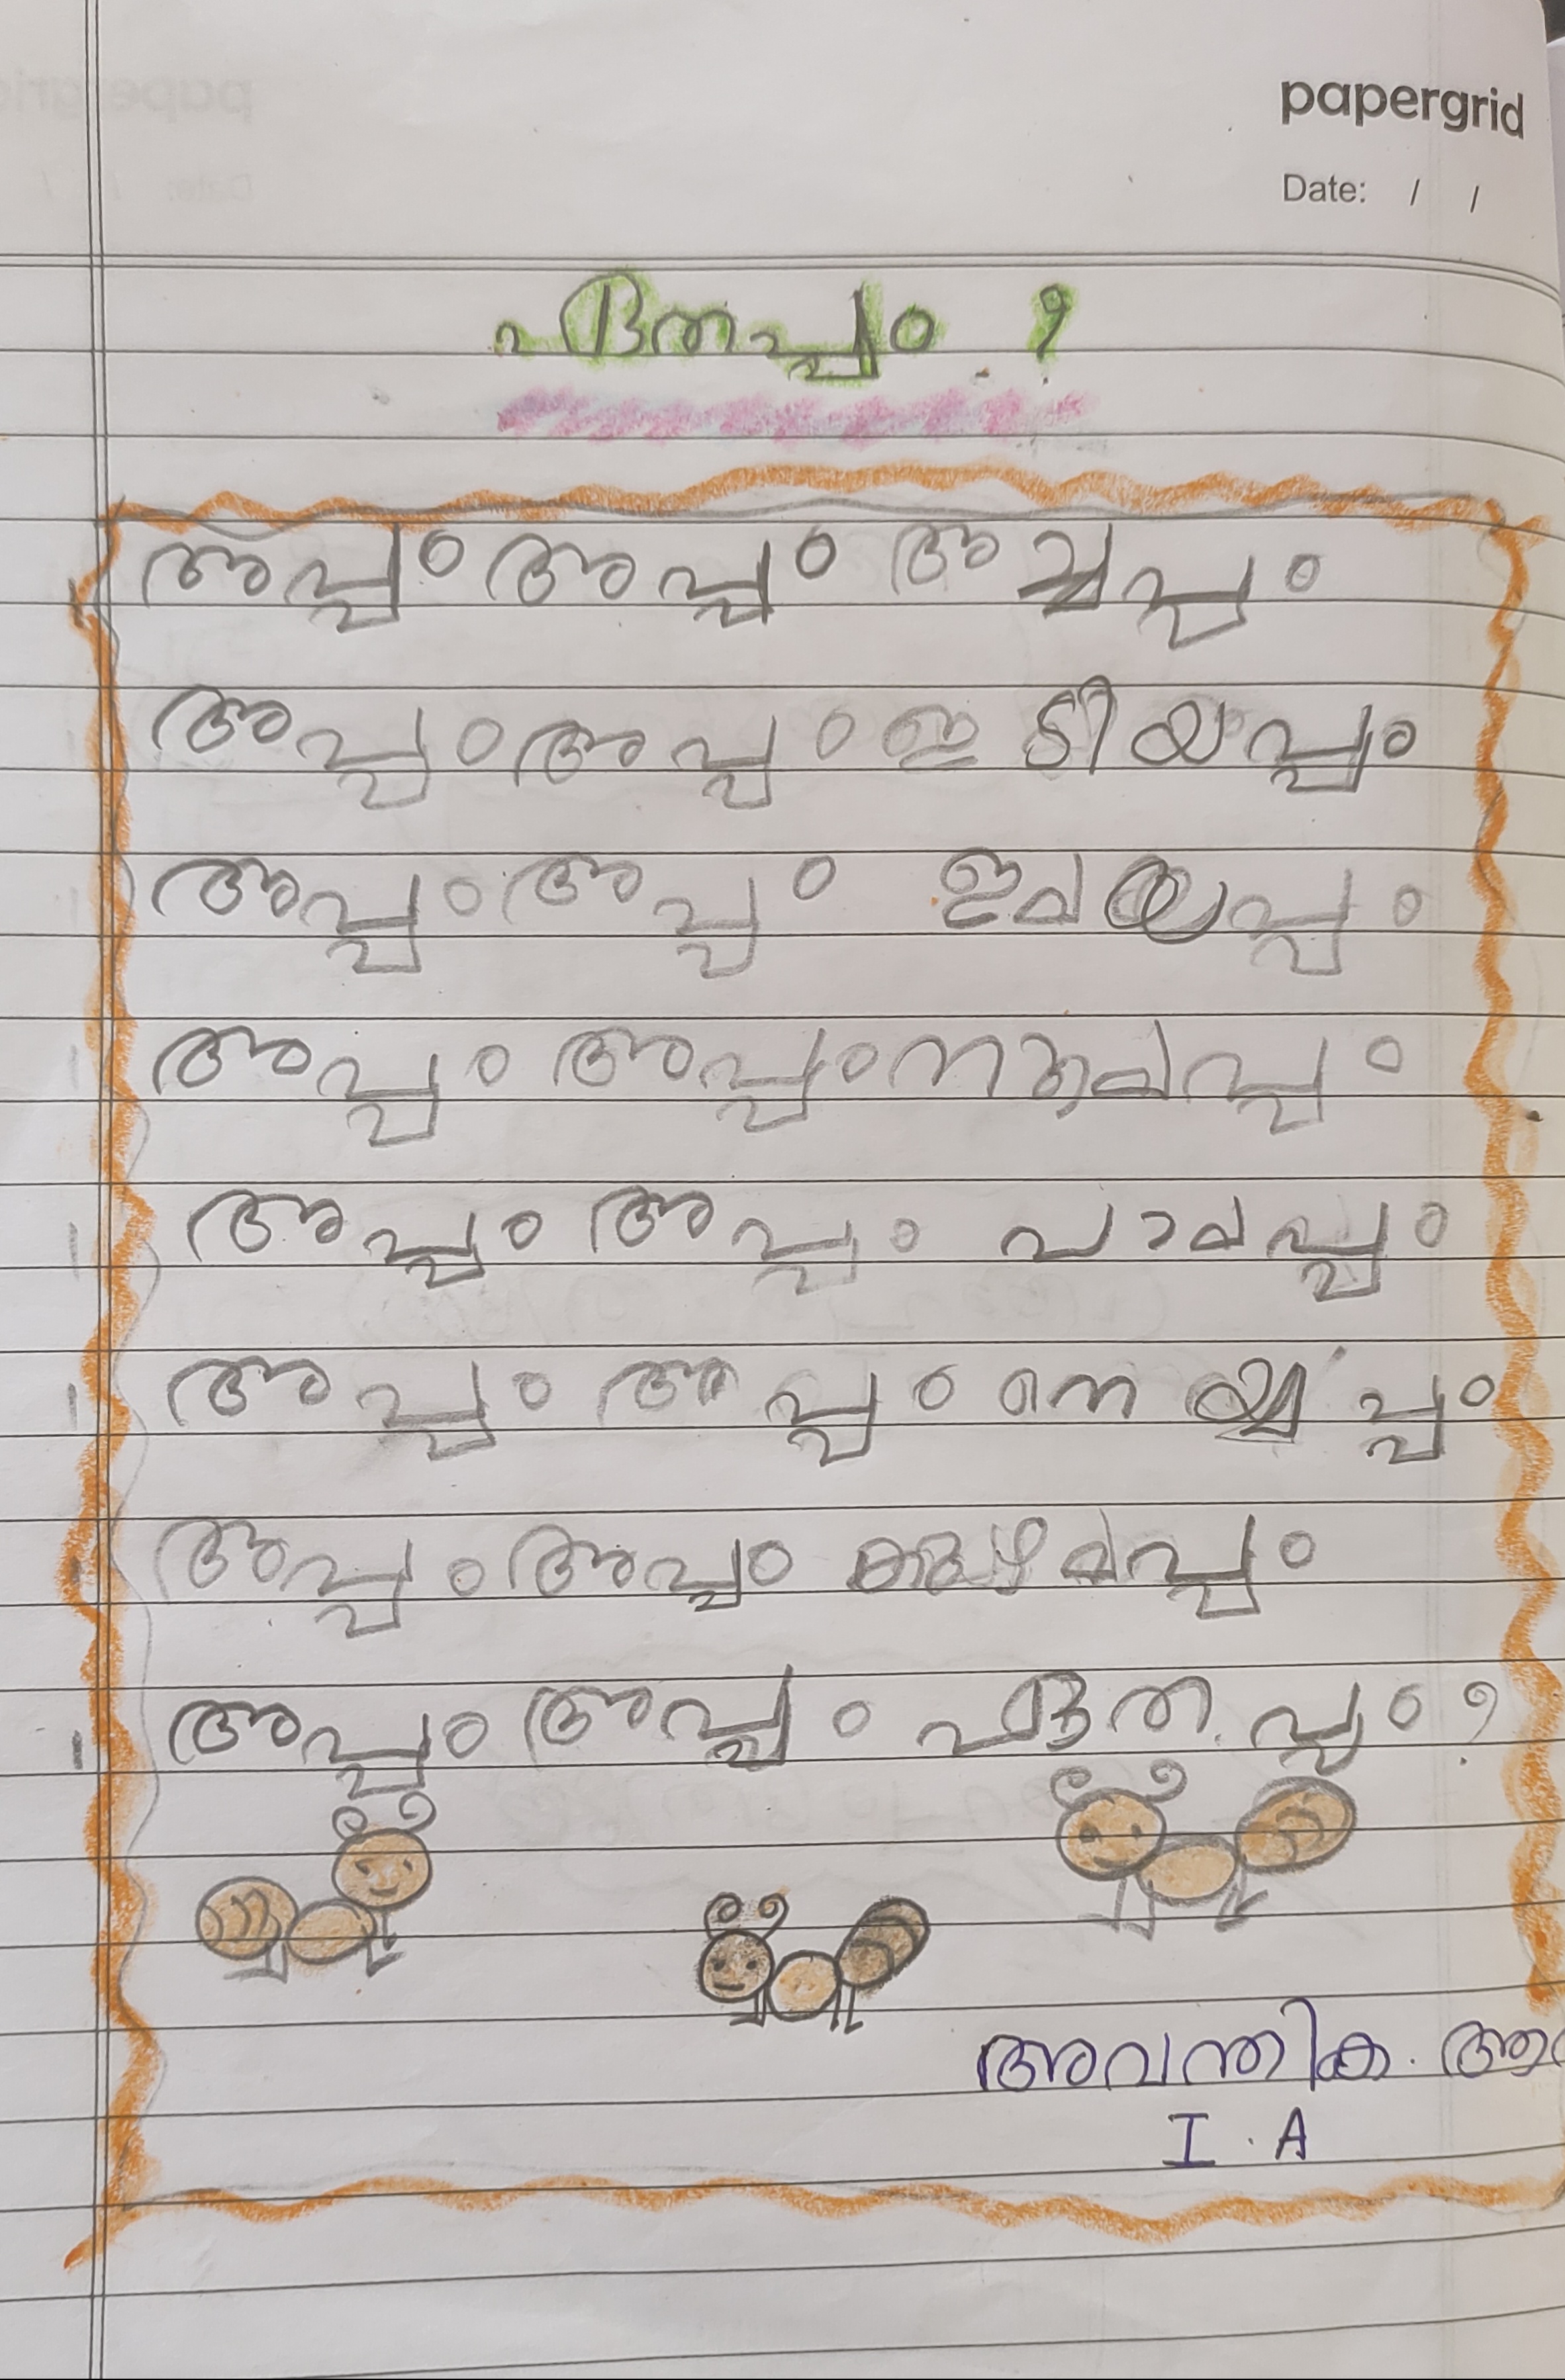 papergrid
Date: / /
ഏതപ്പം ?
അപ്പം അപ്പം അച്ചപ്പം
അപ്പം അപ്പം ഇടിയപ്പം
അപ്പം അപ്പം ഇലയപ്പം
അപ്പം അപ്പം നൂലപ്പം
അപ്പം അപ്പം പാലപ്പം
അപ്പം അപ്പം നെയ്യപ്പം
അപ്പം അപ്പം കുഴലപ്പം
അപ്പം അപ്പം ഏതപ്പം ?
അവന്തിക.
I . A